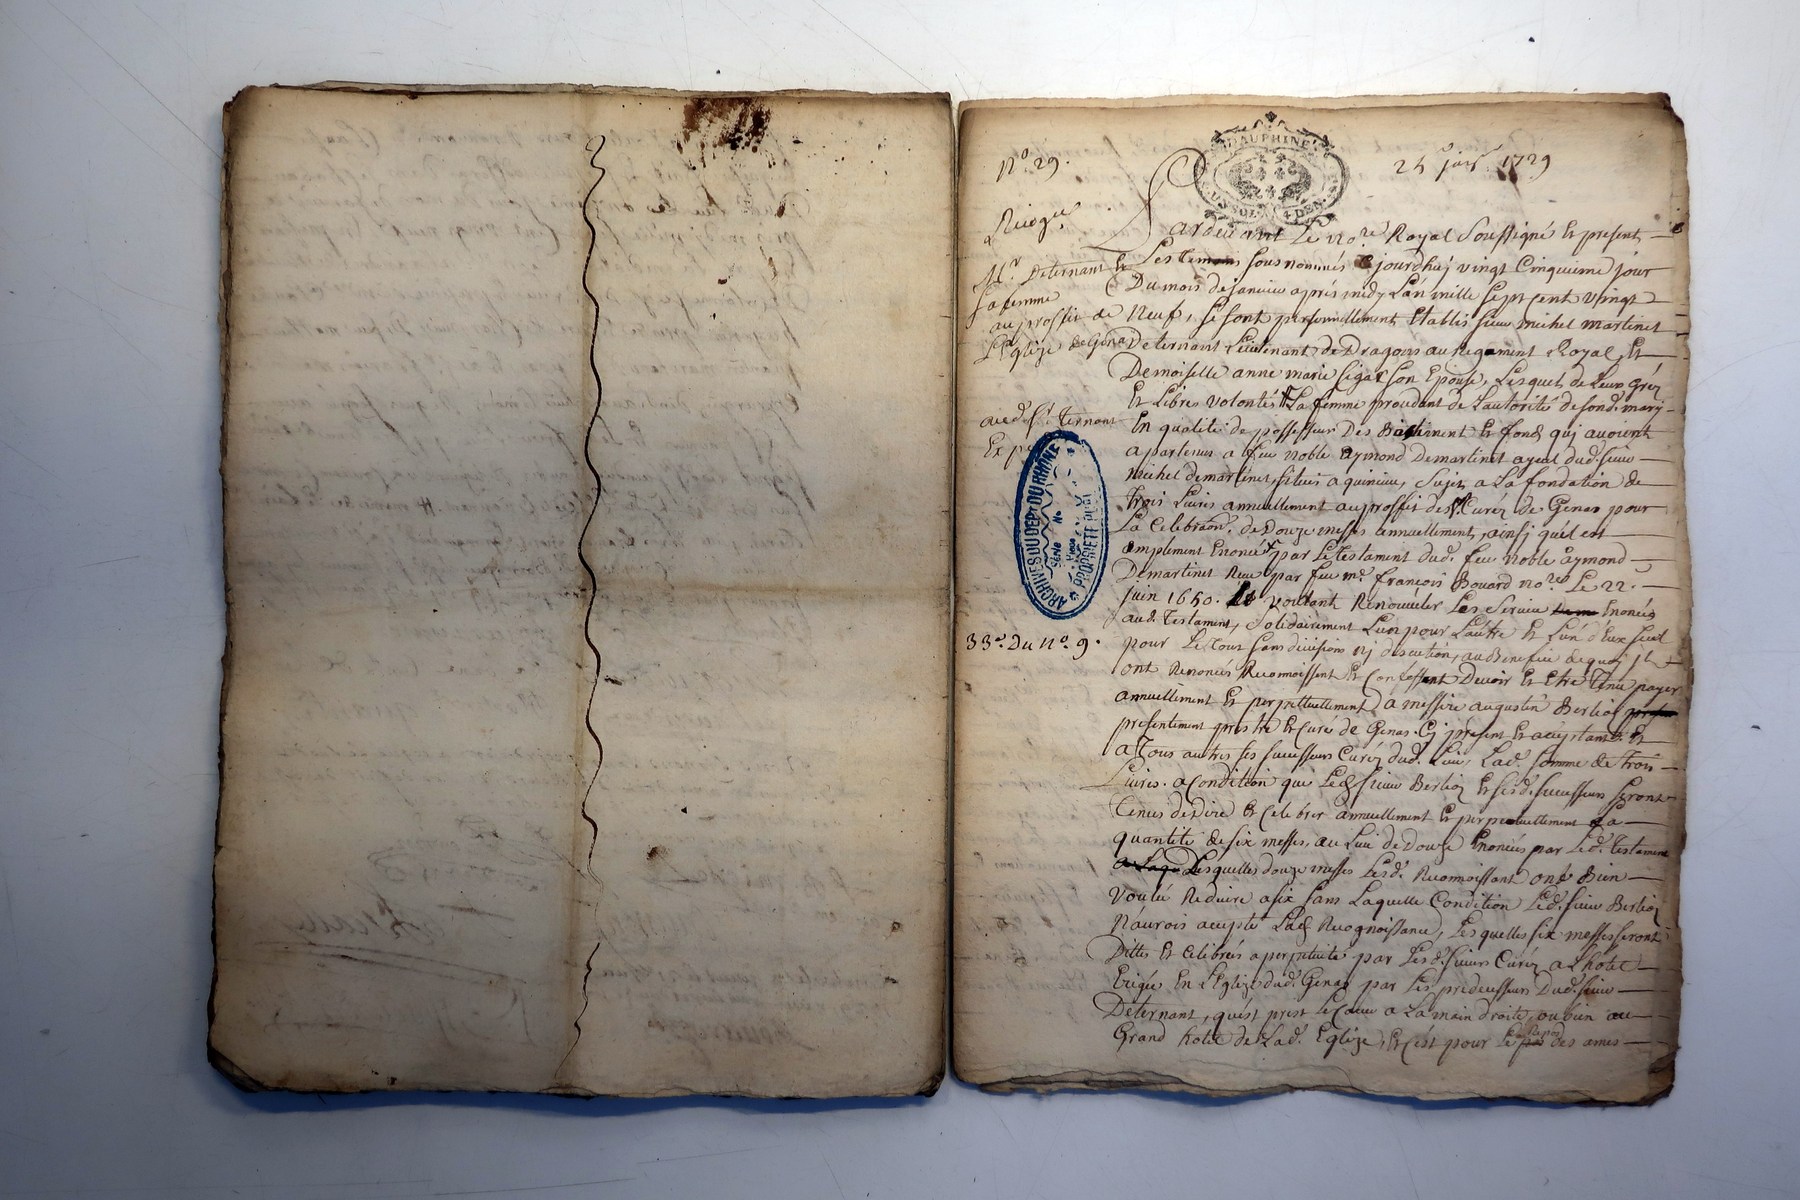 N.o 29.
DAUPHINÉ
25 janv. 1729
Pardevant Le no.re Royal Soussigné Et present
Mr. Deternant Et
sa femme
au proffit de
L'Eglize de Genas
Les Temoins sous nommés ajourdhuj vingt Cinquieme jour
Du mois de janvier aprés midy L'an mille sept cent vingt
Neuf, se sont personnellement Etablis sieur michel martinet
Deternant Lieutenant de Dragons au Regiment Royal, Et
Demoiselle anne marie sigar son Epouse, Lesquels de Leur gréz
Et Libres volontés La femme procedant de L'autorité de sond. mary
aud. Sr. Ternant
En qualité de possesseur Des Bastiment Et fond qui avoient
apartenus a feu noble aymond Demartinet ayeul dud. sieur
michel demartinet, situés a quincieu, Sujets a La fondation de
Trois Livres annuellement au proffit des Sr. Curéz de Genas pour
La Celebraon. de Douze messes annuellement, ainsj qu'il est
amplement Enoncé par Le testament dud. feu noble aymond
Demartinet Receu par feu me. françois Bouard no.re Le 22.
juin 1650. Et voullant Renouveler Les Service Enoncés
aud. Testament, solidairement L'un pour L'autre Et L'un d'Eux seul
33.e Du N.o 9.
pour Le Tout sans divisions nj discution, au Benefice de quoy jls
ont Renoncés Reconnoissent Et Confessent Devoir Et Etre Tenu payer
annuellement Et perpettuellement, a messire augustin Berlioz
presentement prestre Et Curé de Genas Cy présent Et acceptant. Et
a Tous autres ses successeurs Curéz dud. Lieu, Lad. somme de trois
Livres. a Condition que Led. sieur Berlioz Et sesd. successeurs seront
Tenus de Dire Et Celebrer annuellement Et perpetuellement La
quantité de six messes, au Lieu de Douze Enoncées par Led. Testament
Lesquelles douze messes Lesd. Reconnoissant ont Bien
voulu Reduire a six sans Laquelle Condition Led. sieur Berlioz
N'aurois accepté Lad. Recognoissance, Lesquelles six messes seront
Dittes Et Celebrées a perpetuité par Lesd. sieurs Curéz a L'hotel
Erigée En L'Eglize dud. Genas par Les predecesseurs Dud. sieur
Deternant, qu'est prest Le Coeur a La main droite, ou bien au
Grand hotel de Lad. Eglize, Et C'est pour Le Repos des ames
ARCHIVES DU DEPT DU RHONE
Série No
Pièce
PROPRIETE PUBL